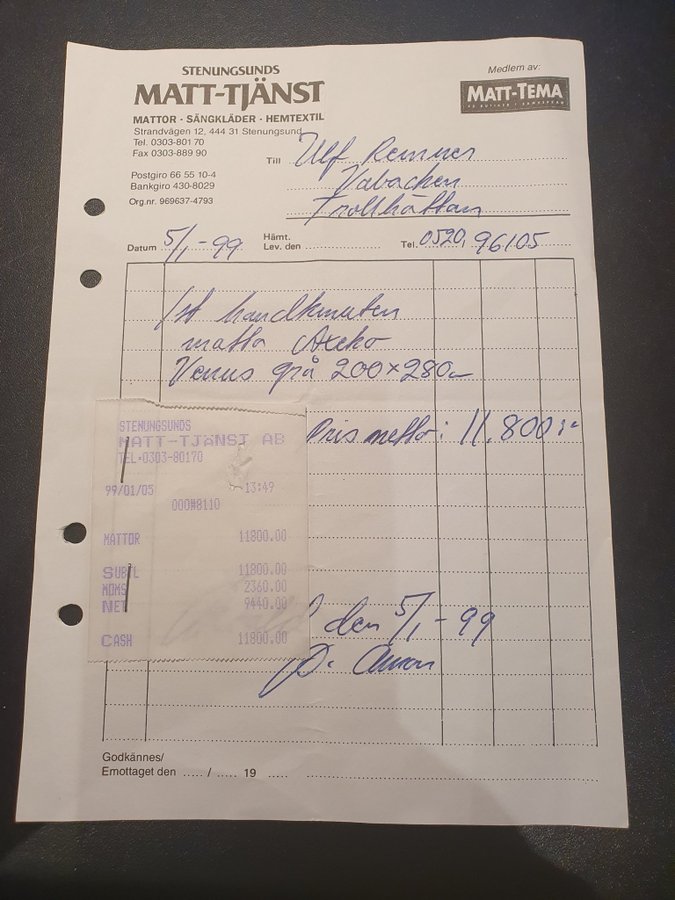 STENUNGSUNDS
MATT-TJÄNST
MATTOR · SÄNGKLÄDER · HEMTEXTIL
Strandvägen 12, 444 31 Stenungsund
Tel. 0303-801 70
Fax 0303-889 90
Postgiro 66 55 10-4
Bankgiro 430-8029
Org.nr. 969637-4793
Medlem av:
MATT-TEMA
Till Ulf
Trollhättan
Datum 5/1-99 Hämt. Lev. den Tel. 0520, 96105
1st handknuten
matta
Venus grå 200×280
Pris netto: 11.800:-
STENUNGSUNDS
MATT-TJÄNST AB
TEL.0303-80170
99/01/05 13:49
000#8110
MATTOR 11800.00
SUBTL 11800.00
MOMS 2360.00
NET 9440.00
CASH 11800.00
den 5/1-99
Godkännes/
Emottaget den ..... / ..... 19 .....